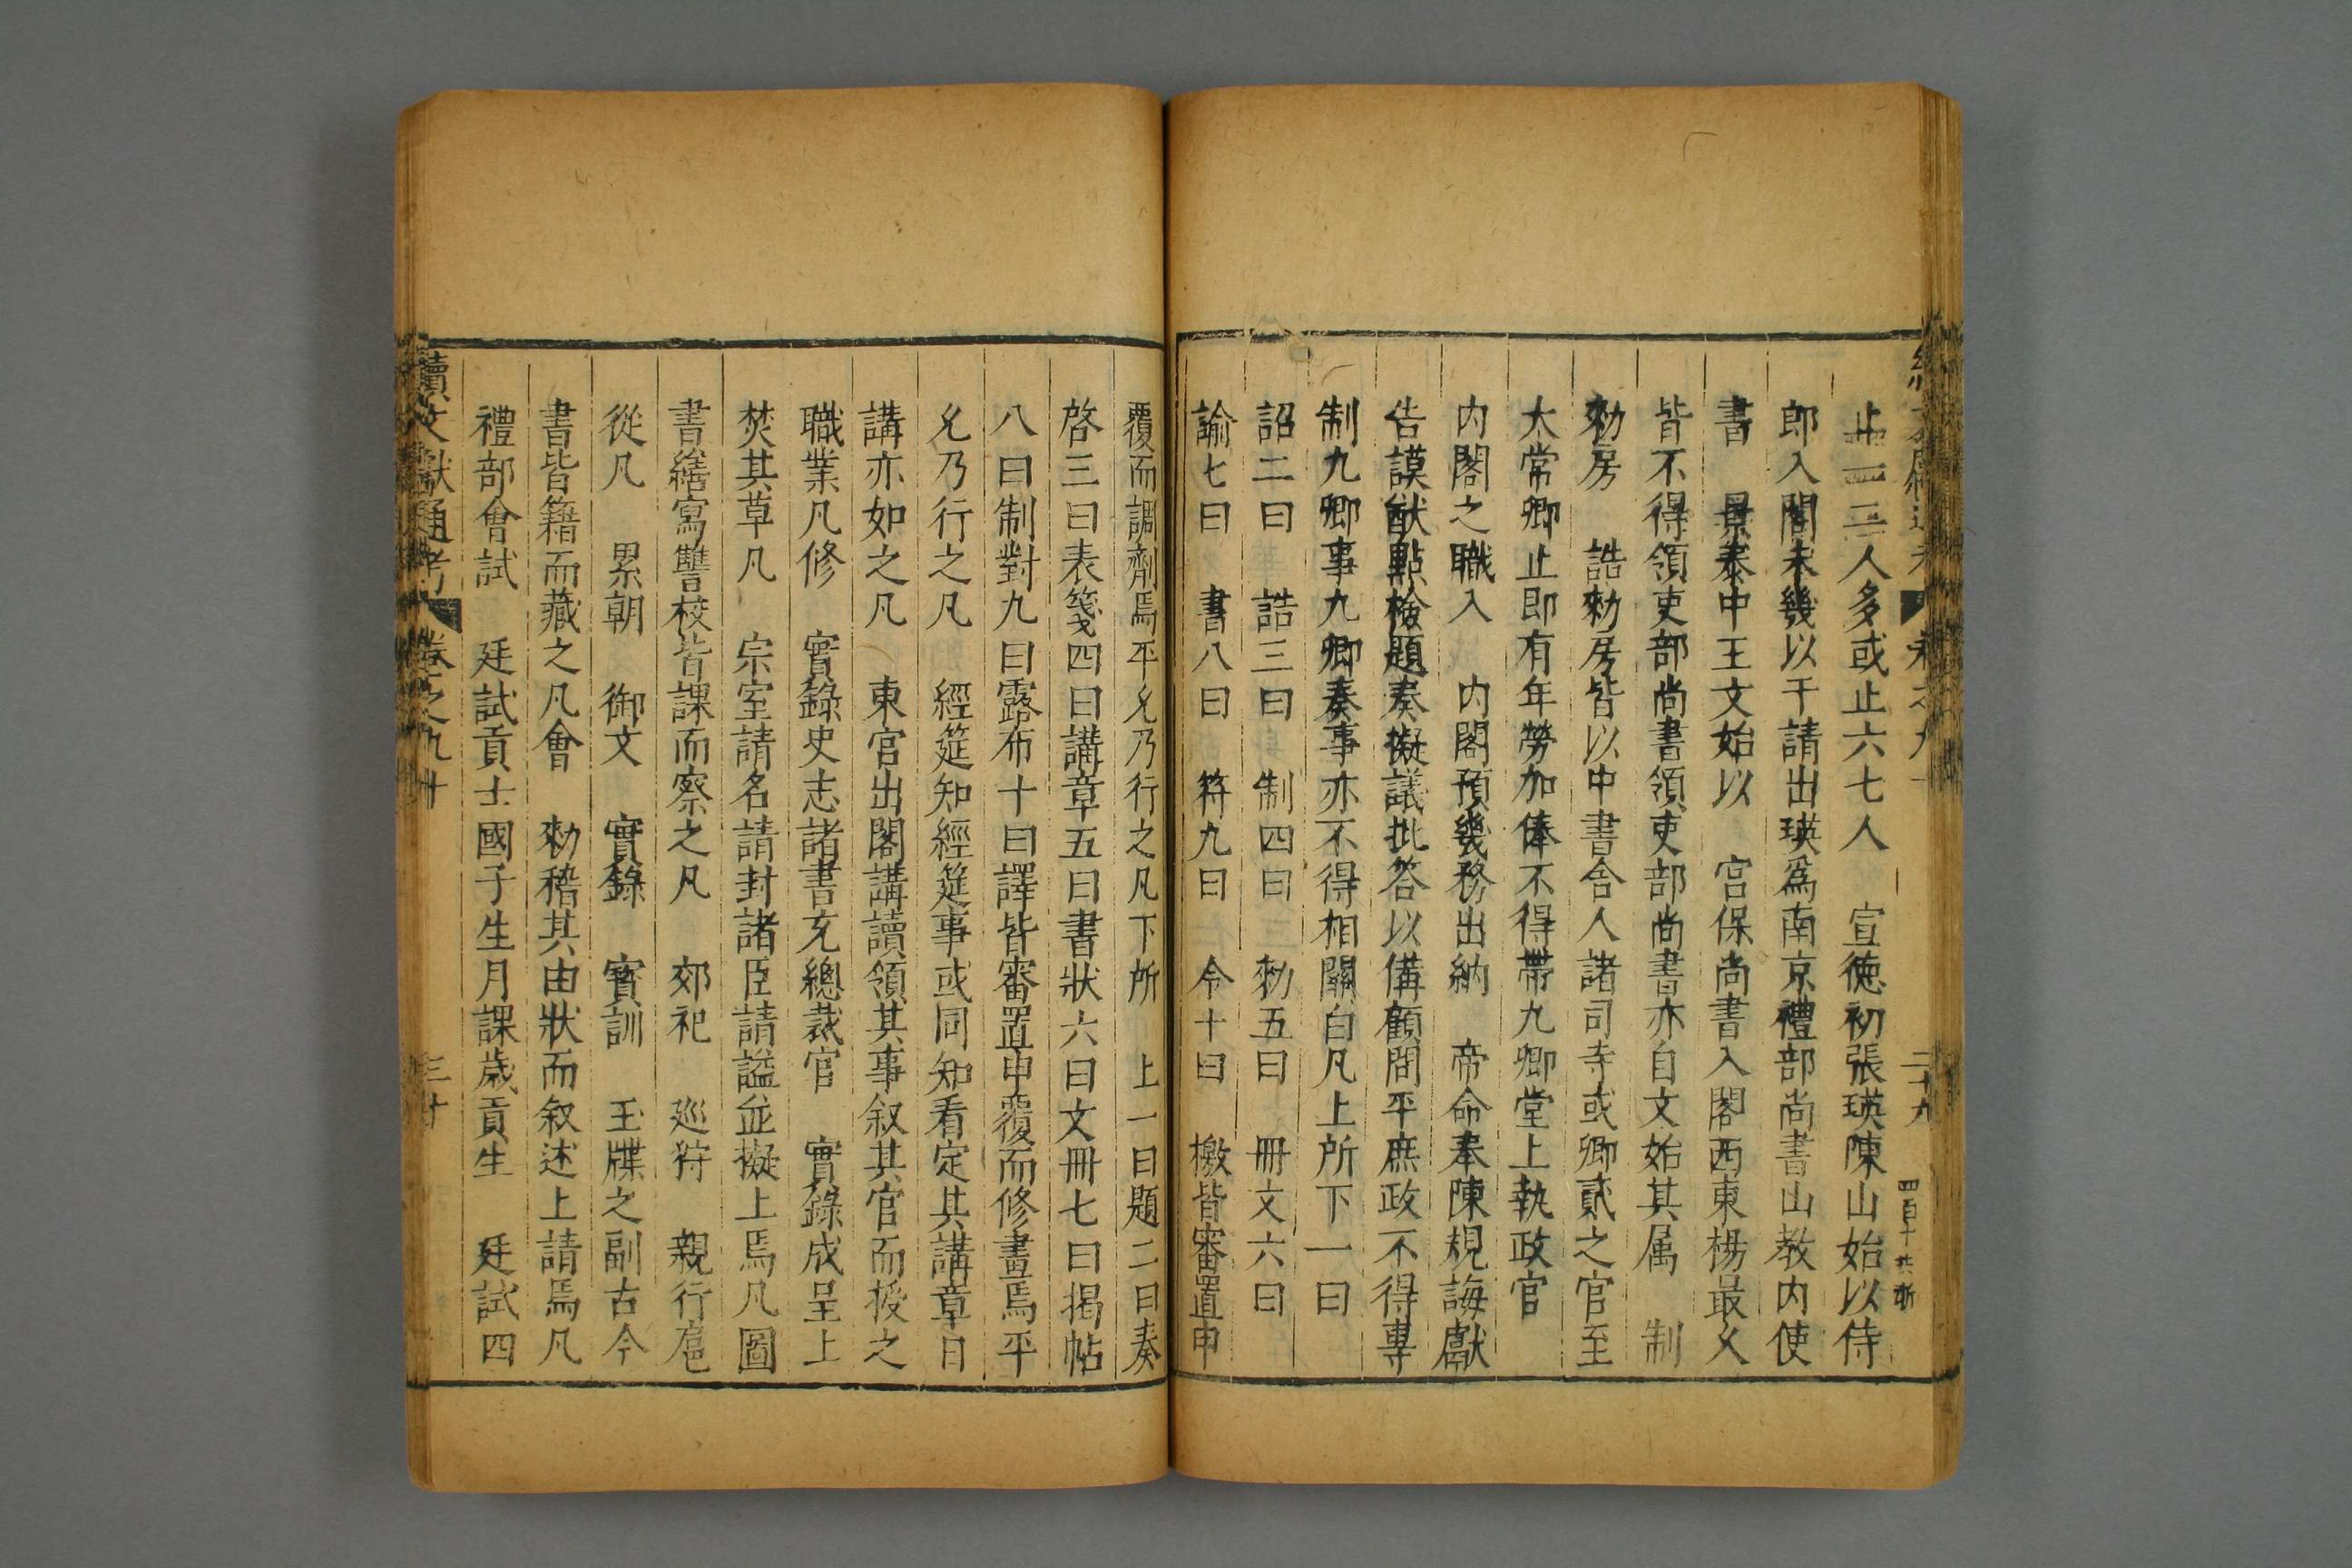 止一二三人多或止六七人　宣德初張瑛陳山始以侍
郎入閣未幾以干請出瑛爲南京禮部尚書山教内使
書　景泰中王文始以　宮保尚書入閣西東楊最乆
皆不得領吏部尚書領吏部尚書亦自文始其属　制
勑房　誥勑房皆以中書舍人諸司寺或卿貳之官至
大常卿止即有年勞加俸不得帶九卿堂上執政官
内閣之職入　内閣預幾務出納　帝命奉陳規誨獻
告謨猷㸃檢題奏擬議批答以備顧問平庶政不得專
制九卿事九卿奏事亦不得相關白凡上所下一曰
詔二曰　誥三曰　制四曰　勑五曰　冊文六曰
諭七曰　書八曰　符九曰　令十曰　檄皆審置申
覆而調劑焉平允乃行之凡下所　上一曰題二曰奏
啓三曰表箋四曰講章五曰書狀六曰文冊七曰揭帖
八曰制對九曰露布十曰譯皆審置申覆而修畫焉平
允乃行之凡　經筵知經筵事或同知看定其講章日
講亦如之凡　東宮出閣講讀領其事叙其官而授之
職業凡修　實錄史志諸書充總裁官　實錄成呈上
焚其草凡　宗室請名請封諸臣請謚並擬上焉凡圖
書繕寫讐校皆課而察之凡　郊祀　巡狩　親行扈
從凡　累朝　御文　實錄　寳訓　玉牒之副古今
書皆籍而藏之凡會　勑稽其由狀而叙述上請焉凡
禮部會試　廷試貢士國子生月課歲貢生　廷試四
續文獻通考　卷之九十　三十